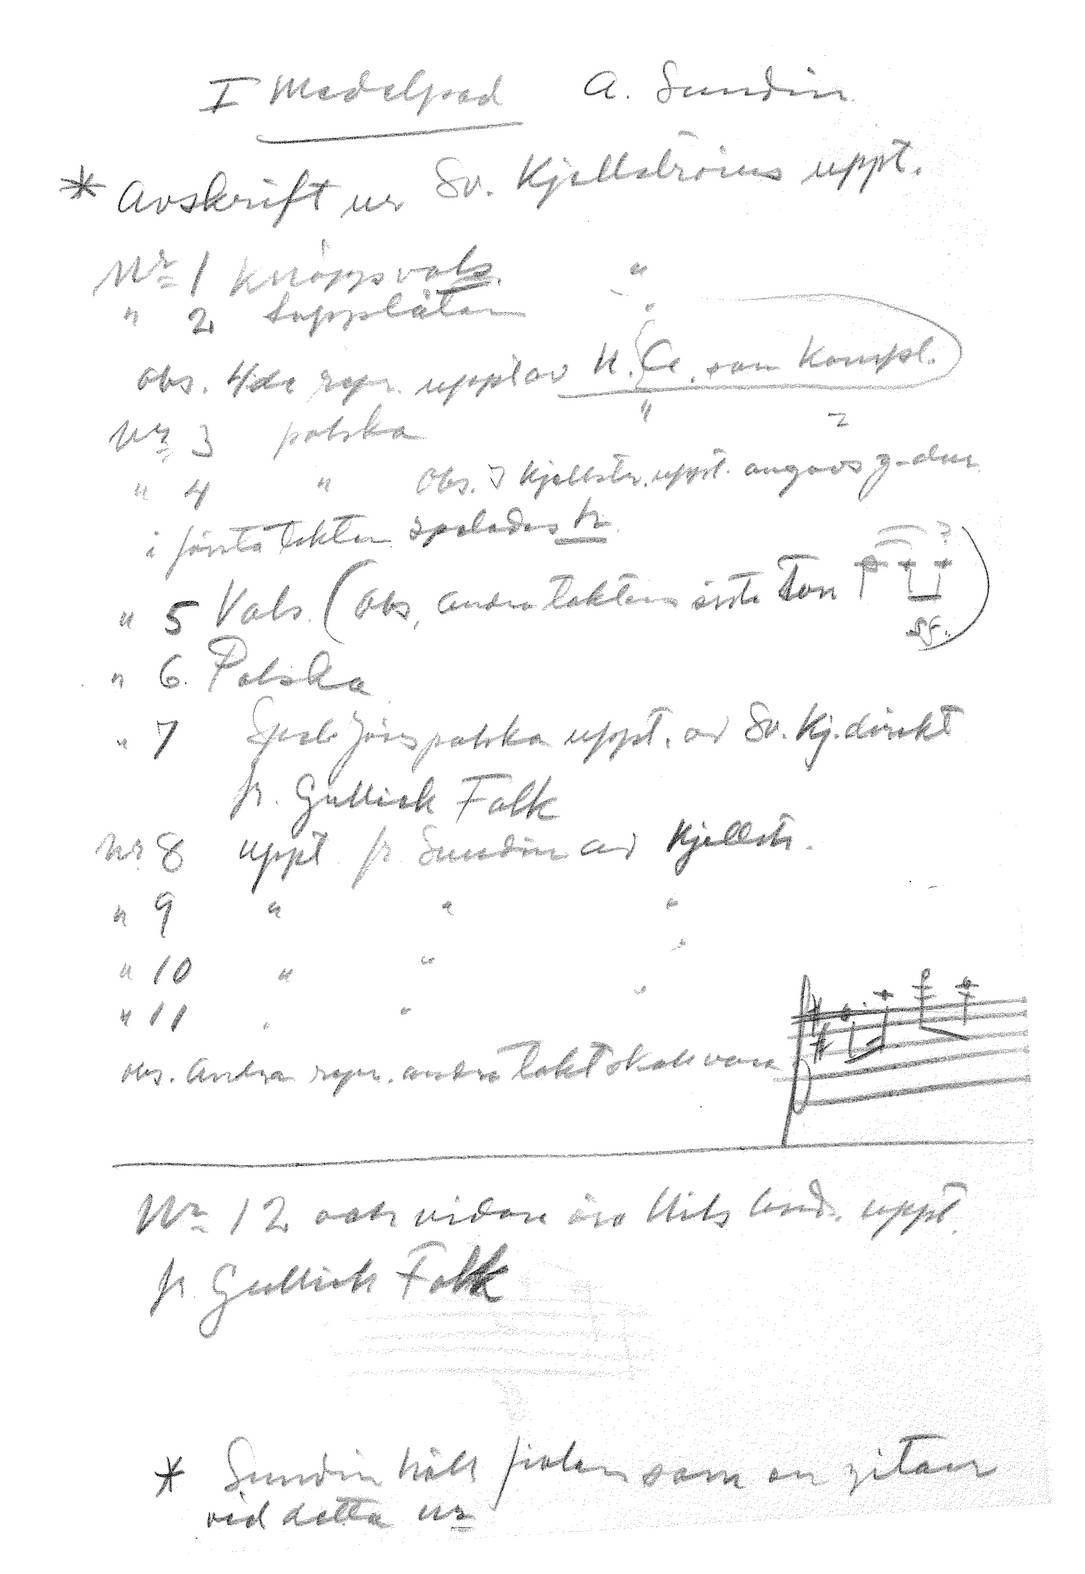 I Medelpad A. Sundin
* Avskrift ur Sv. Kjellströms uppt.
Nr 1 Knäppvals "
" 2 Supplåten "
obs. 4de repr. uppt av som kompl.
Nr 3 polska " 2
" 4 " Obs. I Kjellstr. uppt. angavs g-dur
i första takten spelades
" 5 Vals. (Obs, andra taktens sista ton ?)
" 6. Polska
" 7 polska uppt. av Sv. Kj. direkt
fr. Gullick Falk
Nr 8 uppt fr Sundin av Kjellstr.
" 9 " " "
" 10 " " "
" 11 " " "
obs. Andra repr. andra takt skall vara
Nr 12 och vidare äro Nils And. uppt.
fr Gullick Falk
* Sundin höll fiolen som en gitarr
vid detta nr